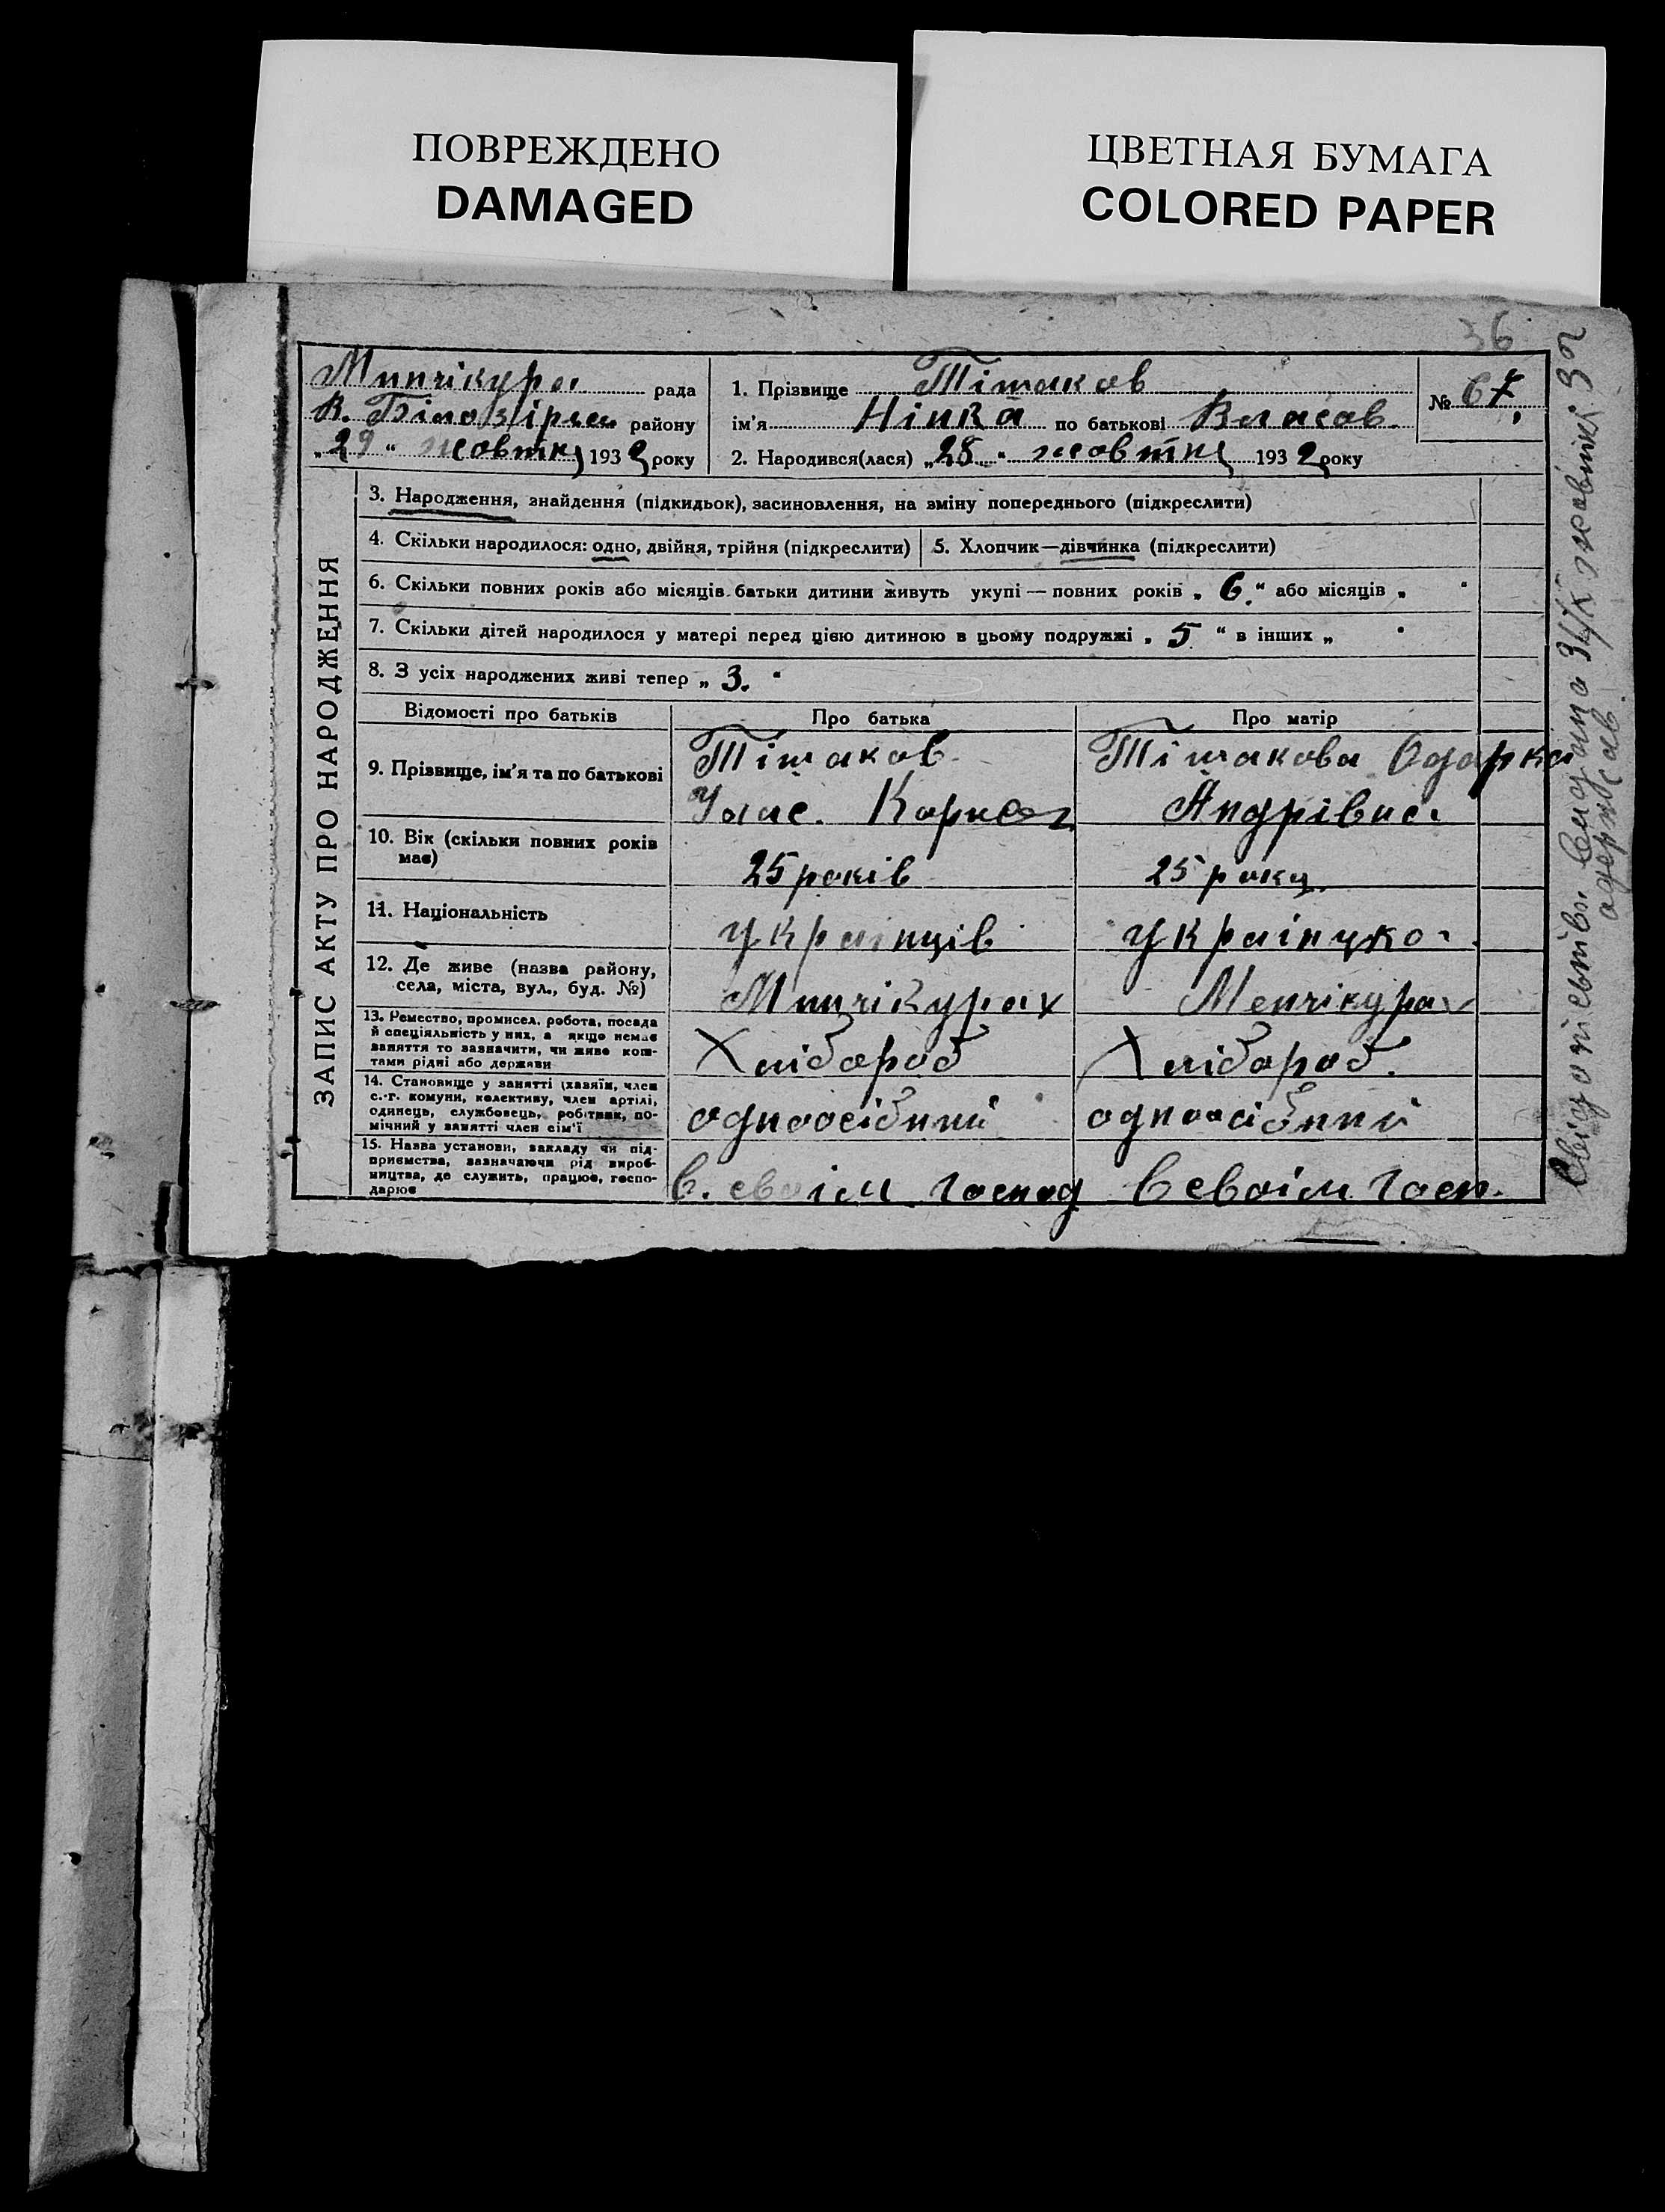 ПОВРЕЖДЕНО
DAMAGED
ЦВЕТНАЯ БУМАГА
COLORED PAPER
36
Минчікура рада
В. Білозірка району
„29“ жовтня 1932 року
1. Прізвище Тітаков
ім'я Нінка по батькові Власов.
2. Народився(лася) „28“ жовтня 1932 року
№ 67.
ЗАПИС АКТУ ПРО НАРОДЖЕННЯ
3. Народження, знайдення (підкидьок), засиновлення, на зміну попереднього (підкреслити)
4. Скільки народилося: одно, двійня, трійня (підкреслити)
5. Хлопчик—дівчинка (підкреслити)
6. Скільки повних років або місяців батьки дитини живуть укупі — повних років „ 6. “ або місяців „ “
7. Скільки дітей народилося у матері перед цією дитиною в цьому подружжі „ 5 “ в інших „ “
8. З усіх народжених живі тепер „ 3. “
Відомості про батьків
Про батька
Про матір
9. Прізвище, ім'я та по батькові
Тітаков
Улас.
Тітакова Одарка
Андрівна
10. Вік (скільки повних років
має)
25 років
25 року.
11. Національність
українців
українцко
12. Де живе (назва району,
села, міста, вул., буд. №)
Минчікурах
Менчікурах
13. Ремество, промисел, робота, посада
й спеціяльність у них, а якщо немає
заняття то зазначити, чи живе кош-
тами рідні або держави
Хлібороб
Хлібороб.
14. Становище у занятті (хазяїн, член
с.-г. комуни, колективу, член артілі,
одинець, службовець, робітник, по-
мічний у занятті член сім'ї
одноосібний
одноосібний
15. Назва установи, закладу чи під-
приємства, зазначаючи рід вироб-
ництва, де служить, працює, госпо-
дарює
в. своім господ
в своім госп.